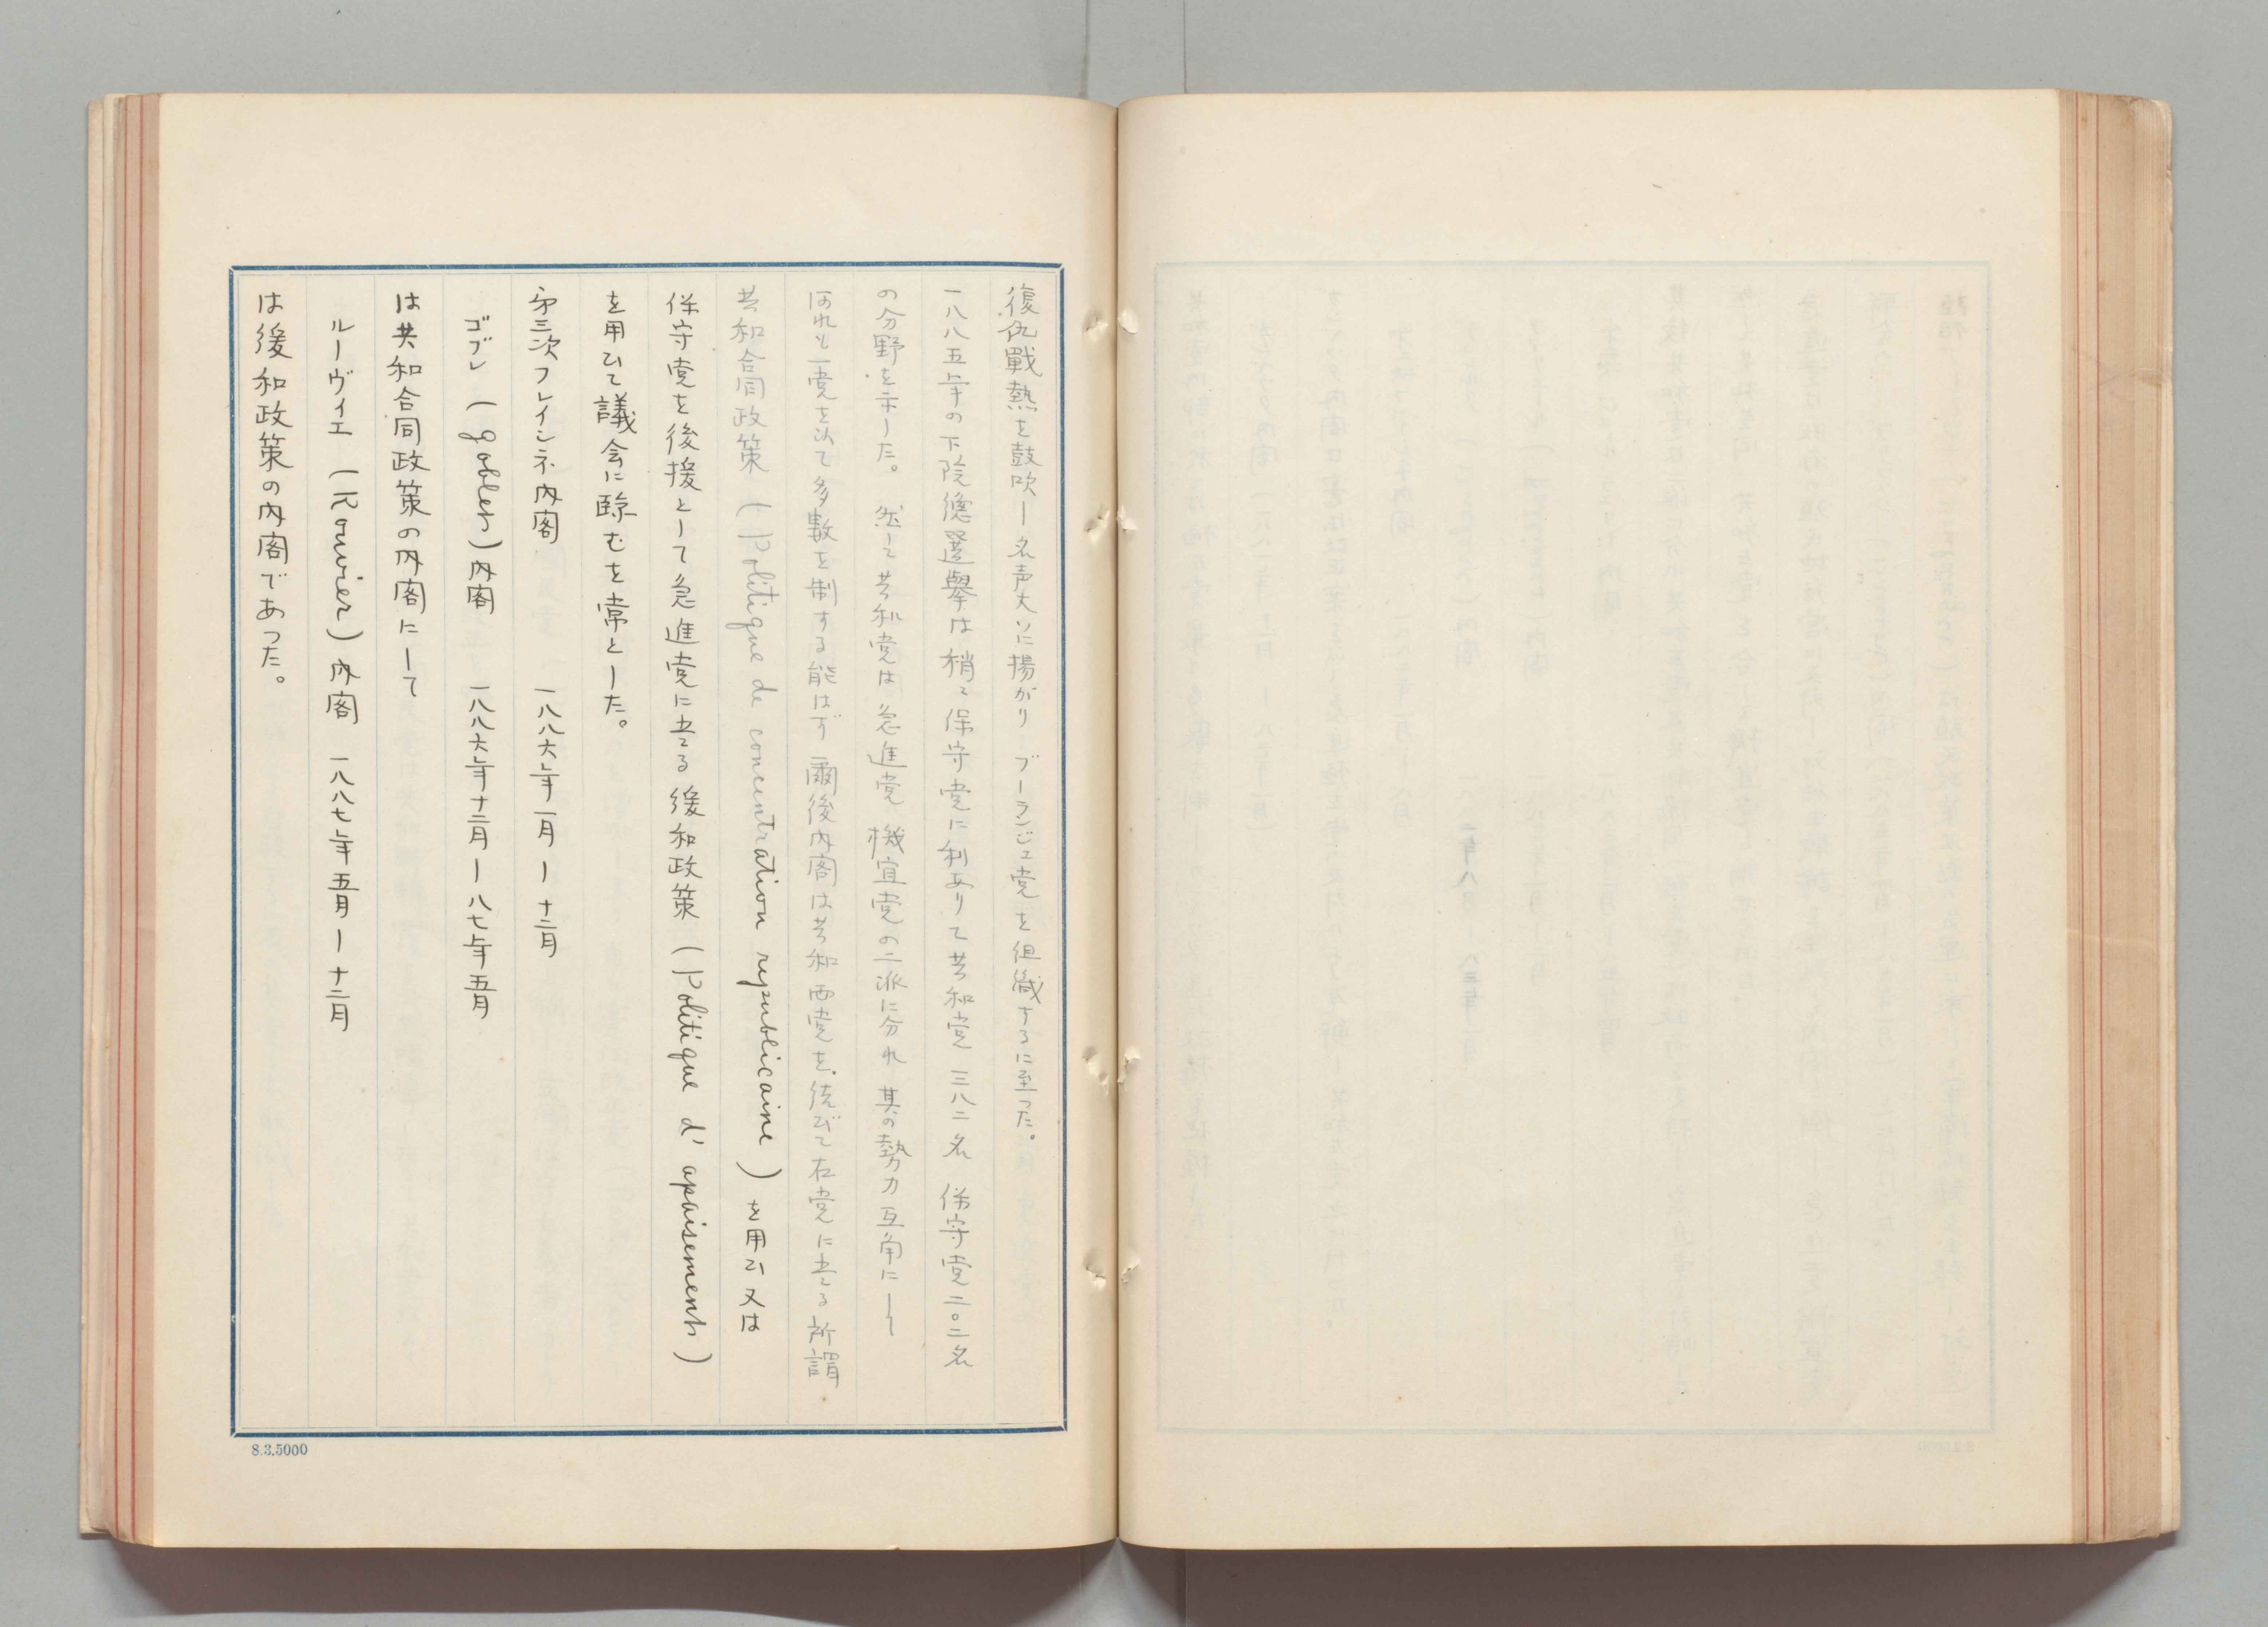 復仇戰熱を鼓吹し名声大いに揚がりブーランジェ党を組織するに至った。
一八八五年の下院總選擧は稍々保守党に利ありて共和党三八二名 保守党二〇二名
の分野を示した。然して共和党は急進党 機宜党の二派に分れ其の勢力互角にして
何れも一党を以て多數を制する能はず 爾後内閣は共和両党を 右党に 所謂
共和合同政策(Politique de concentration republicaine)を用ひ又は
保守党を後援として急進党に当る緩和政策(Politique d'apaisement)
を用ひて議会に臨むを常とした。
第三次フレイシネ内閣 一八八六年一月ー十二月
ゴブレ(Goblet)内閣 一八八六年十二月ー八七年五月
は共和合同政策の内閣にして
ルーヴィエ(Rouvier)内閣 一八八七年五月ー十二月
は緩和政策の内閣であった。
8.3.5000